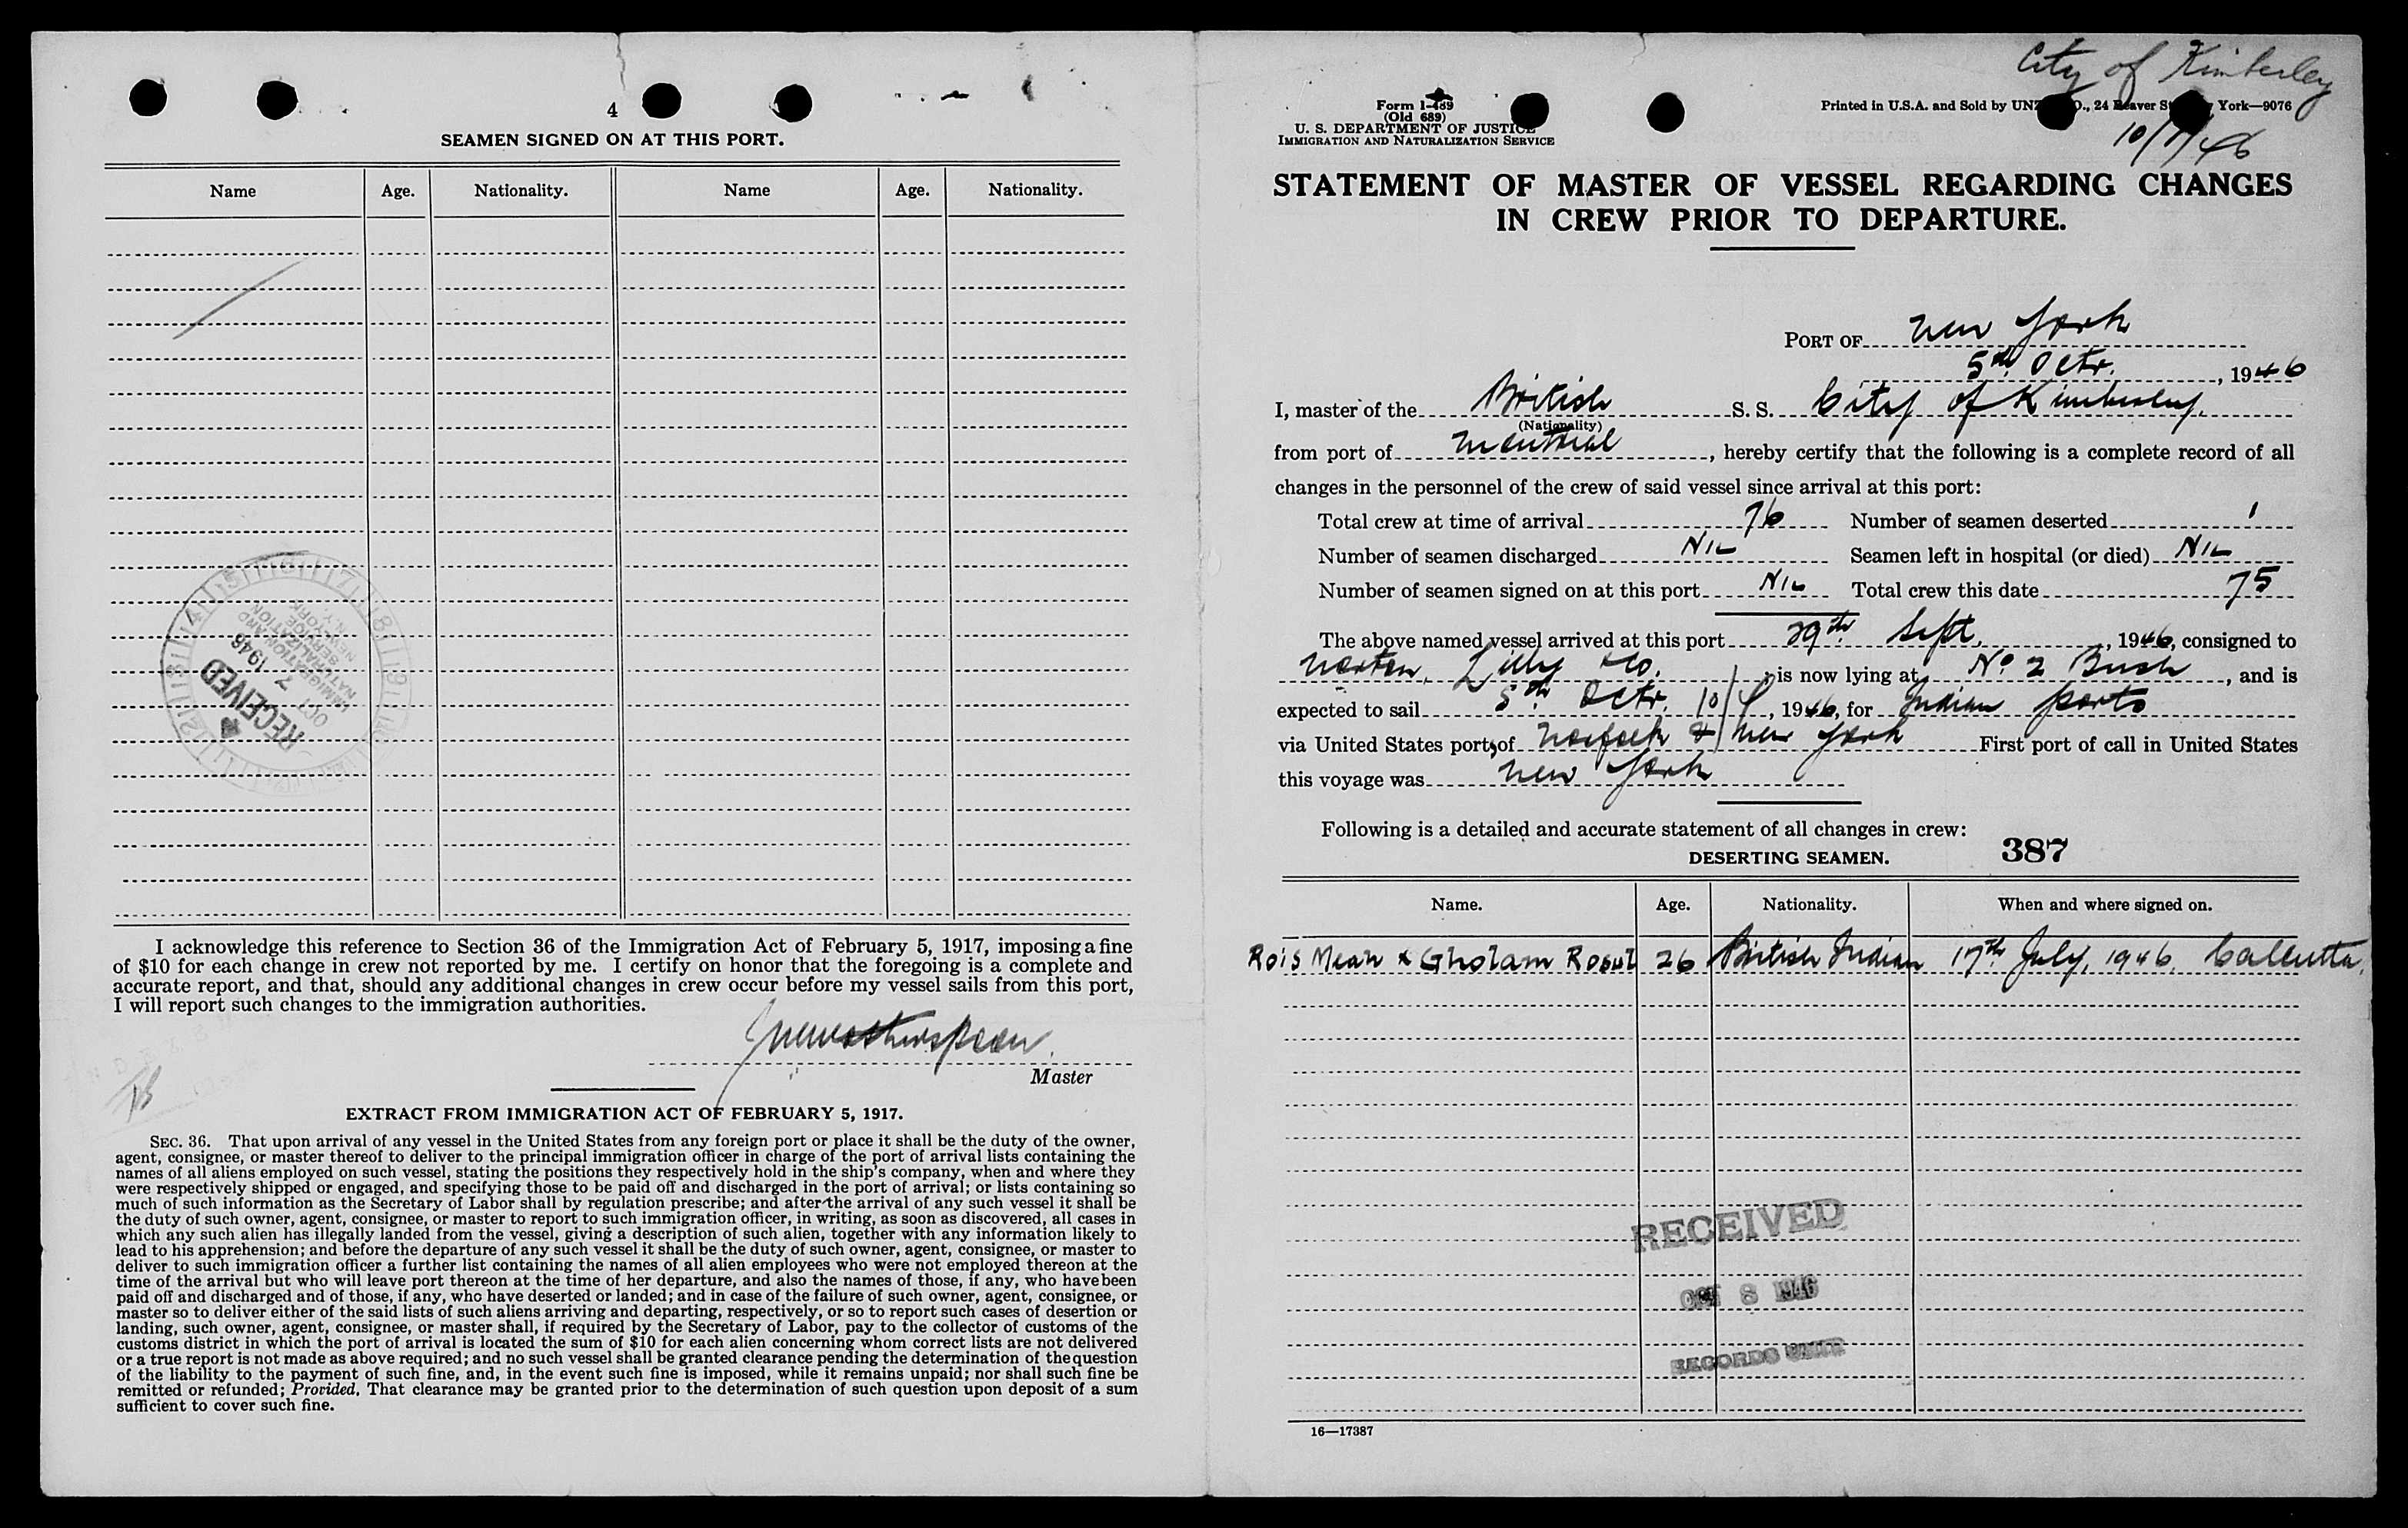 4
SEAMEN SIGNED ON AT THIS PORT.
Name Age. Nationality. Name Age. Nationality.
RECEIVED
OCT 7 1946
IMMIGRATION AND
NATURALIZATION
SERVICE
NEW YORK, N.Y.
I acknowledge this reference to Section 36 of the Immigration Act of February 5, 1917, imposing a fine
of $10 for each change in crew not reported by me. I certify on honor that the foregoing is a complete and
accurate report, and that, should any additional changes in crew occur before my vessel sails from this port,
I will report such changes to the immigration authorities.
Master
EXTRACT FROM IMMIGRATION ACT OF FEBRUARY 5, 1917.
SEC. 36. That upon arrival of any vessel in the United States from any foreign port or place it shall be the duty of the owner,
agent, consignee, or master thereof to deliver to the principal immigration officer in charge of the port of arrival lists containing the
names of all aliens employed on such vessel, stating the positions they respectively hold in the ship's company, when and where they
were respectively shipped or engaged, and specifying those to be paid off and discharged in the port of arrival; or lists containing so
much of such information as the Secretary of Labor shall by regulation prescribe; and after the arrival of any such vessel it shall be
the duty of such owner, agent, consignee, or master to report to such immigration officer, in writing, as soon as discovered, all cases in
which any such alien has illegally landed from the vessel, giving a description of such alien, together with any information likely to
lead to his apprehension; and before the departure of any such vessel it shall be the duty of such owner, agent, consignee, or master to
deliver to such immigration officer a further list containing the names of all alien employees who were not employed thereon at the
time of the arrival but who will leave port thereon at the time of her departure, and also the names of those, if any, who have been
paid off and discharged and of those, if any, who have deserted or landed; and in case of the failure of such owner, agent, consignee, or
master so to deliver either of the said lists of such aliens arriving and departing, respectively, or so to report such cases of desertion or
landing, such owner, agent, consignee, or master shall, if required by the Secretary of Labor, pay to the collector of customs of the
customs district in which the port of arrival is located the sum of $10 for each alien concerning whom correct lists are not delivered
or a true report is not made as above required; and no such vessel shall be granted clearance pending the determination of the question
of the liability to the payment of such fine, and, in the event such fine is imposed, while it remains unpaid; nor shall such fine be
remitted or refunded; Provided, That clearance may be granted prior to the determination of such question upon deposit of a sum
sufficient to cover such fine.
City of Kimberley
10/7/46
Form I-489
(Old 689)
U. S. DEPARTMENT OF JUSTICE
IMMIGRATION AND NATURALIZATION SERVICE
Printed in U.S.A. and Sold by UNZ O., 24 Beaver St York—9076
STATEMENT OF MASTER OF VESSEL REGARDING CHANGES
IN CREW PRIOR TO DEPARTURE.
PORT OF New York
5th Octr. , 1946
I, master of the British S. S. City of Kimberley.
(Nationality)
from port of Montreal , hereby certify that the following is a complete record of all
changes in the personnel of the crew of said vessel since arrival at this port:
Total crew at time of arrival 76 Number of seamen deserted 1
Number of seamen discharged NIL Seamen left in hospital (or died) NIL
Number of seamen signed on at this port NIL Total crew this date 75
The above named vessel arrived at this port 29th Sept. , 1946, consigned to
Norton, Lilly & Co. , is now lying at No 2 Bush , and is
expected to sail 5th Octr. 10/7 , 1946, for Indian ports
via United States ports of Norfolk & New York First port of call in United States
this voyage was New York
Following is a detailed and accurate statement of all changes in crew:
DESERTING SEAMEN. 387
Name. Age. Nationality. When and where signed on.
Rois Meah x Gholam Rosul 26 British Indian 17th July, 1946. Calcutta.
RECEIVED
OCT 8 1946
RECORDS UNIT
16—17387